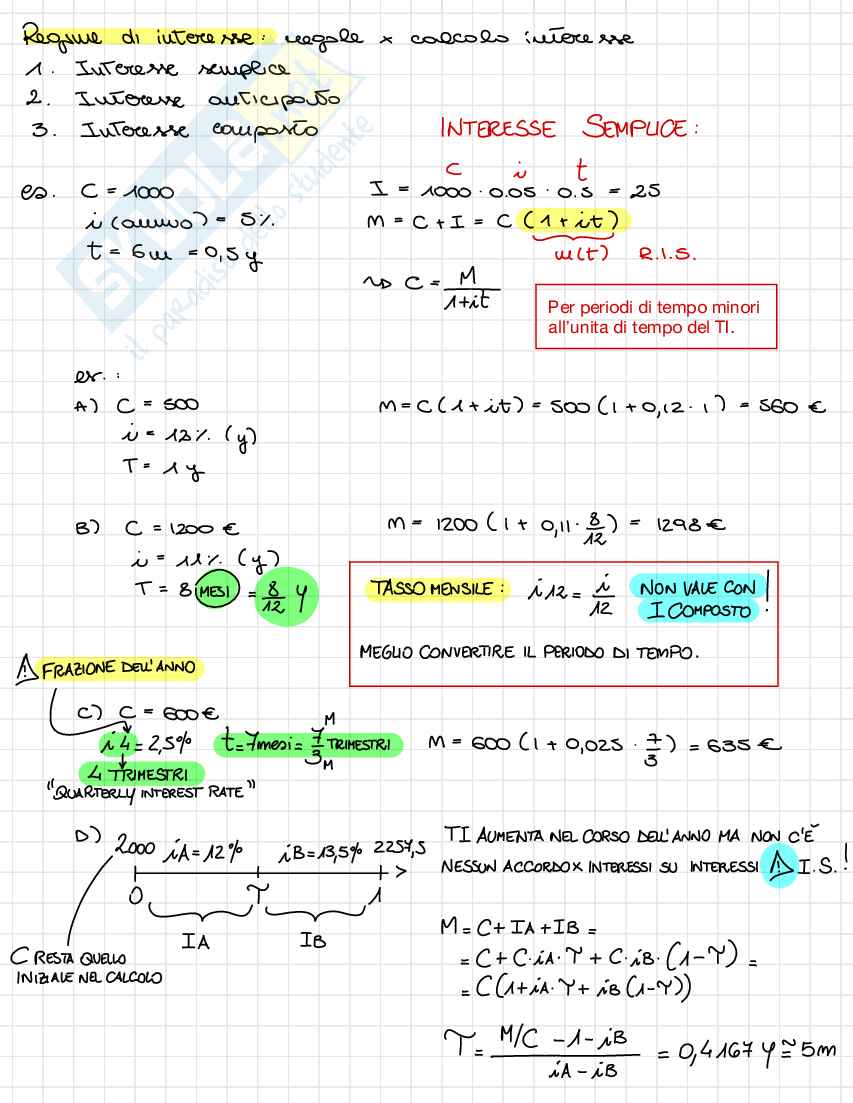 Regime di interesse: regole x calcolo interesse
1. Interesse semplice
2. Interesse anticipato
3. Interesse composto
SKUOLA.net
il paradiso dello studente
INTERESSE SEMPLICE:
C i t
es. C = 1000
i (annuo) = 5%
t = 6m = 0,5y
I = 1000 · 0.05 · 0.5 = 25
M = C + I = C (1 + it)
m(t) R.I.S.
↝ C = M/1+it
Per periodi di tempo minori
all'unita di tempo del TI.
es. :
A) C = 500
i = 12% (y)
T = 1y
M = C (1 + it) = 500 (1 + 0,12 · 1) = 560 €
B) C = 1200 €
i = 11% (y)
T = 8 MESI = 8/12 y
M = 1200 (1 + 0,11 · 8/12) = 1298 €
TASSO MENSILE: i12 = i/12 NON VALE CON
I COMPOSTO!
MEGLIO CONVERTIRE IL PERIODO DI TEMPO.
⚠ FRAZIONE DELL'ANNO
C) C = 600 €
i4 = 2,5% t = 7mesi = 7/3 TRIMESTRI
M
M
4 TRIMESTRI
"QUARTERLY INTEREST RATE"
M = 600 (1 + 0,025 · 7/3) = 635 €
D) 2000 iA = 12% iB = 13,5% 2257,5
0 τ 1
IA IB
C RESTA QUELLO
INIZIALE NEL CALCOLO
TI AUMENTA NEL CORSO DELL'ANNO MA NON C'È
NESSUN ACCORDO x INTERESSI SU INTERESSI ⚠ I.S.!
M = C + IA + IB =
= C + C·iA·τ + C·iB·(1-τ) =
= C(1 + iA·τ + iB(1-τ))
τ = M/C - 1 - iB / iA - iB = 0,4167 y ≅ 5m